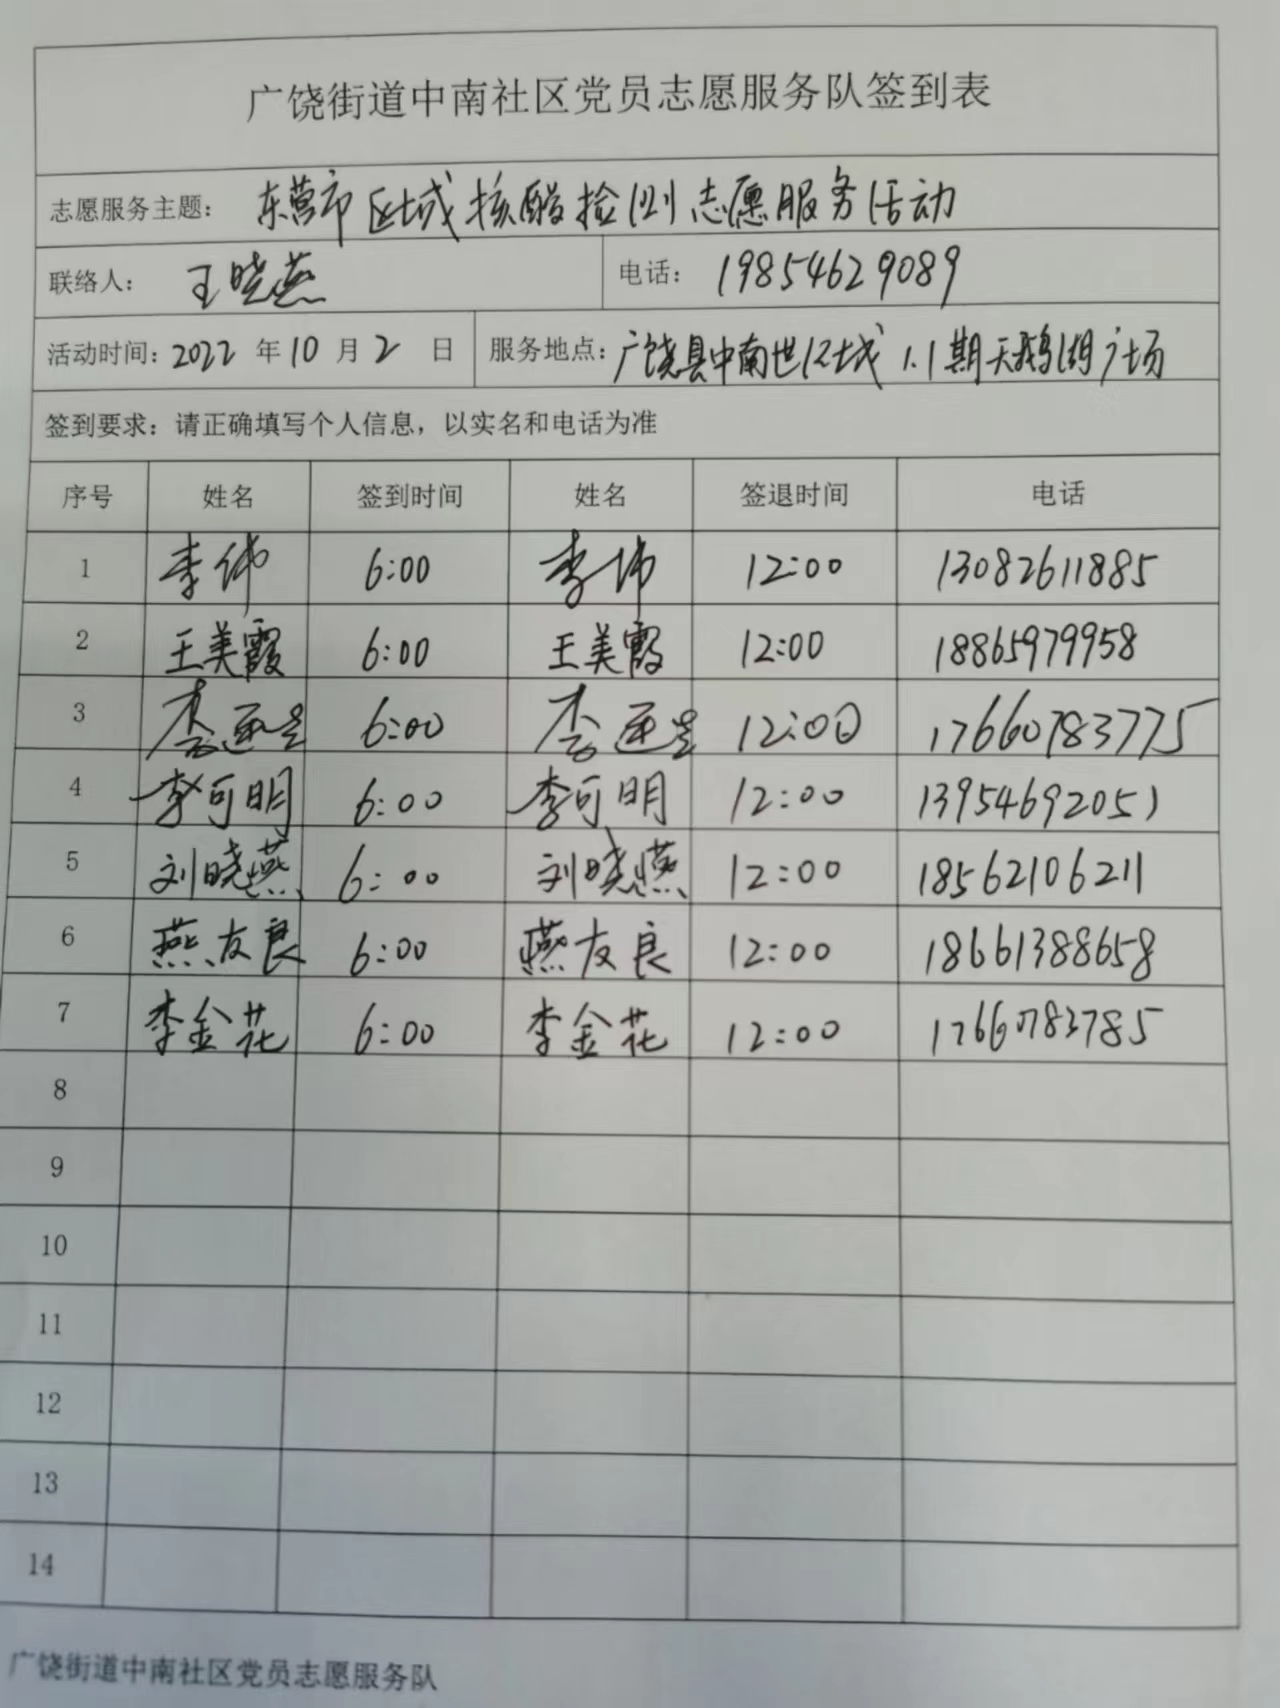 广饶街道中南社区党员志愿服务队签到表
志愿服务主题： 东营市区域核酸检测志愿服务活动
联络人： 王晓燕 电话： 19854629089
活动时间：2022 年 10 月 2 日 服务地点：广饶县中南世纪城 1.1期天鹅湖广场
签到要求：请正确填写个人信息，以实名和电话为准
序号 姓名 签到时间 姓名 签退时间 电话
1 李伟 6:00 李伟 12:00 13082611885
2 王美霞 6:00 王美霞 12:00 18865979958
3 李 6:00 李 12:00 17660783775
4 李可明 6:00 李可明 12:00 13954692051
5 刘晓燕 6:00 刘晓燕 12:00 18562106211
6 燕友良 6:00 燕友良 12:00 18661388658
7 李金花 6:00 李金花 12:00 17660783785
8
9
10
11
12
13
14
广饶街道中南社区党员志愿服务队